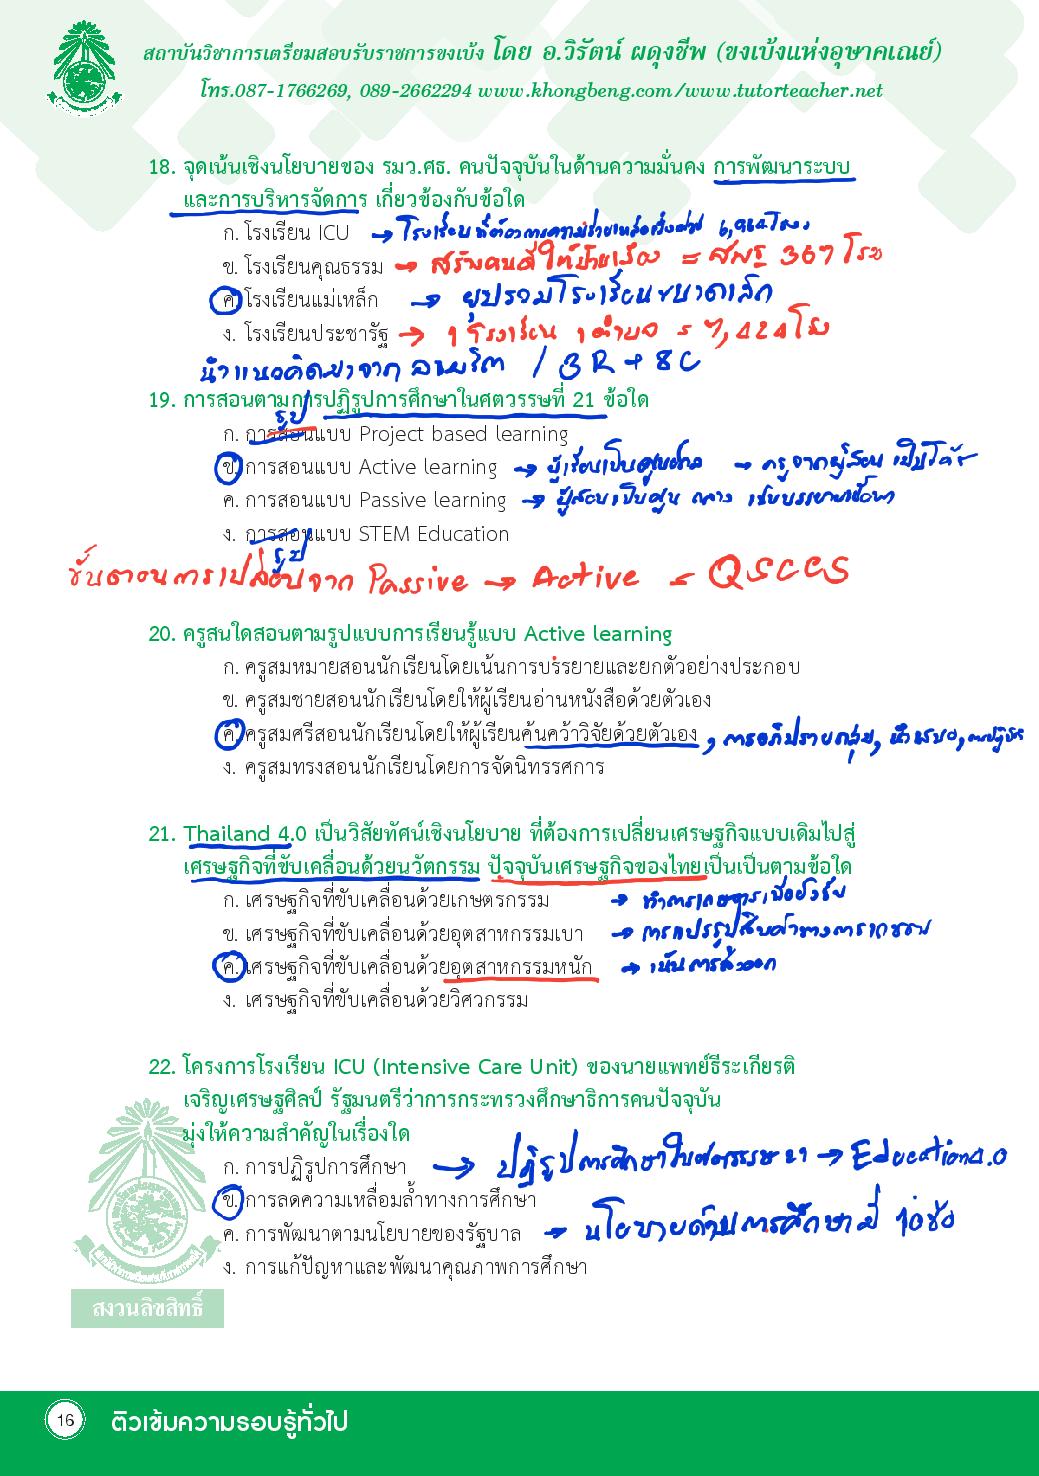 สถาบันวิชาการเตรียมสอบรับราชการขงเบ้ง โดย อ.วิรัตน์ ผดุงชีพ (ขงเบ้งแห่งอุษาคเณย์)
โทร.087-1766269, 089-2662294 www.khongbeng.com/www.tutorteacher.net
18. จุดเน้นเชิงนโยบายของ รมว.ศธ. คนปัจจุบันในด้านความมั่นคง การพัฒนาระบบ
และการบริหารจัดการ เกี่ยวข้องกับข้อใด
ก. โรงเรียน ICU → โรงเรียนที่ต้องการความช่วยเหลือ
ข. โรงเรียนคุณธรรม → สร้างคนดีให้บ้านเมือง = สพฐ 367 โรง
ค. โรงเรียนแม่เหล็ก → ยุบรวมโรงเรียนขนาดเล็ก
ง. โรงเรียนประชารัฐ → 1 โรงเรียน 1 ตำบล = 7,424 โรง
นำแนวคิดมาจาก อเมริกา / 3R + 8C
19. การสอนตามการปฏิรูปการศึกษาในศตวรรษที่ 21 ข้อใด
รูป
ก. การสอนแบบ Project based learning
ข. การสอนแบบ Active learning → ผู้เรียนเป็นศูนย์กลาง → ครูจากผู้สอน เป็นโค้ช
ค. การสอนแบบ Passive learning → ผู้สอนเป็นศูนย์กลาง เน้นบรรยายเนื้อหา
ง. การสอนแบบ STEM Education
รูป
ขั้นตอนการเปลี่ยนจาก Passive → Active = QSCCS
20. ครูสนใดสอนตามรูปแบบการเรียนรู้แบบ Active learning
ก. ครูสมหมายสอนนักเรียนโดยเน้นการบรรยายและยกตัวอย่างประกอบ
ข. ครูสมชายสอนนักเรียนโดยให้ผู้เรียนอ่านหนังสือด้วยตัวเอง
ค. ครูสมศรีสอนนักเรียนโดยให้ผู้เรียนค้นคว้าวิจัยด้วยตัวเอง , การอภิปรายกลุ่ม,
ง. ครูสมทรงสอนนักเรียนโดยการจัดนิทรรศการ
21. Thailand 4.0 เป็นวิสัยทัศน์เชิงนโยบาย ที่ต้องการเปลี่ยนเศรษฐกิจแบบเดิมไปสู่
เศรษฐกิจที่ขับเคลื่อนด้วยนวัตกรรม ปัจจุบันเศรษฐกิจของไทยเป็นเป็นตามข้อใด
ก. เศรษฐกิจที่ขับเคลื่อนด้วยเกษตรกรรม → ทำการเกษตรเพื่อยังชีพ
ข. เศรษฐกิจที่ขับเคลื่อนด้วยอุตสาหกรรมเบา → การแปรรูปสินค้าทางการเกษตร
ค. เศรษฐกิจที่ขับเคลื่อนด้วยอุตสาหกรรมหนัก → เน้นการส่งออก
ง. เศรษฐกิจที่ขับเคลื่อนด้วยวิศวกรรม
22. โครงการโรงเรียน ICU (Intensive Care Unit) ของนายแพทย์ธีระเกียรติ
เจริญเศรษฐศิลป์ รัฐมนตรีว่าการกระทรวงศึกษาธิการคนปัจจุบัน
มุ่งให้ความสำคัญในเรื่องใด
ก. การปฏิรูปการศึกษา → ปฏิรูปการศึกษาในศตวรรษ 21 → Education 4.0
ข. การลดความเหลื่อมล้ำทางการศึกษา
ค. การพัฒนาตามนโยบายของรัฐบาล → นโยบายด้านการศึกษามี 10 ข้อ
ง. การแก้ปัญหาและพัฒนาคุณภาพการศึกษา
สงวนลิขสิทธิ์
16 ติวเข้มความรอบรู้ทั่วไป